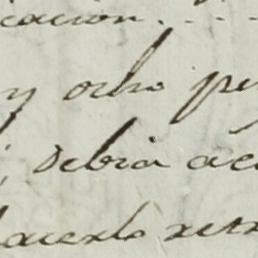 cacion....
y ocho pe
debia ac
hacerlo